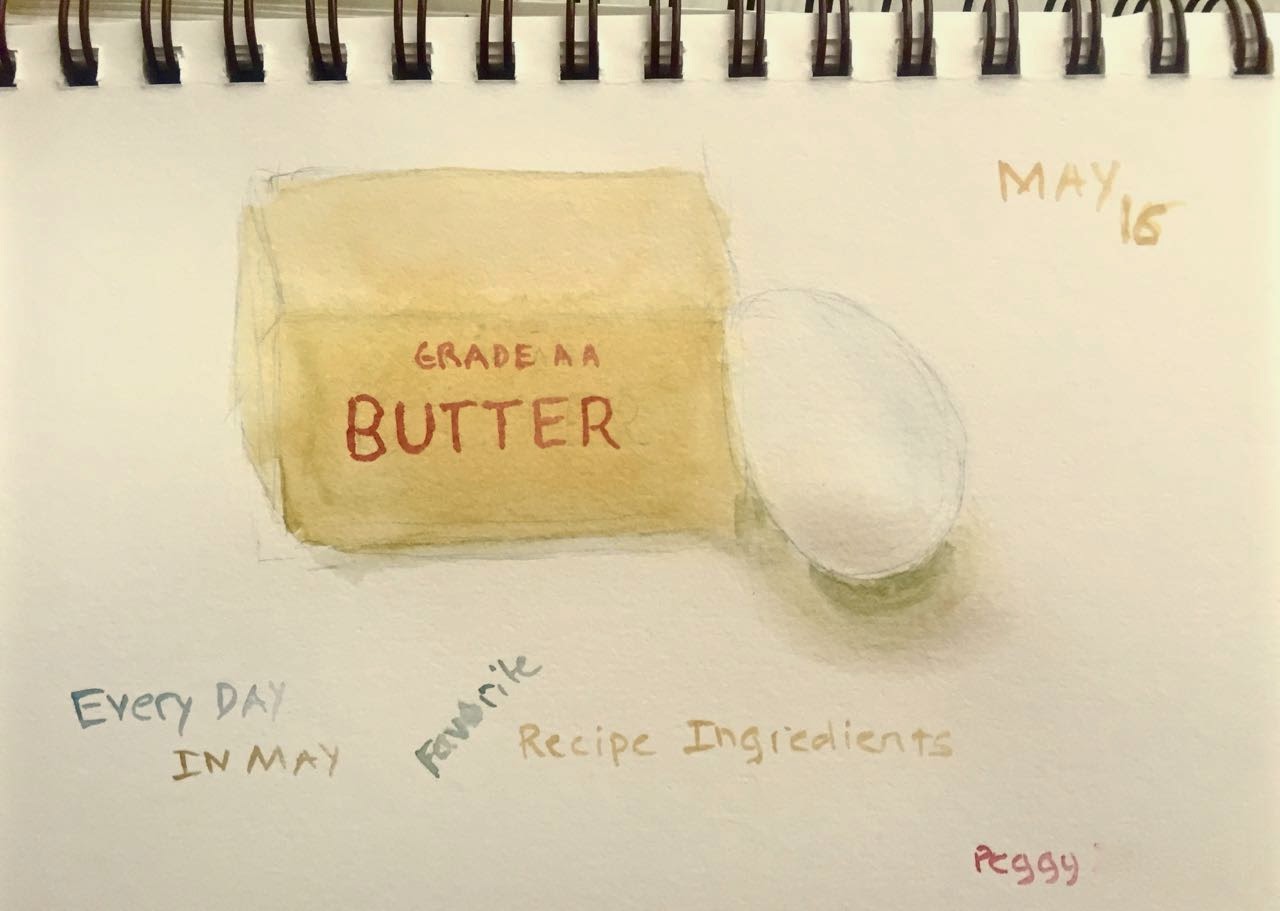 MAY
16
GRADE AA
BUTTER
Every DAY
IN MAY
Favorite
Recipe Ingredients
Peggy